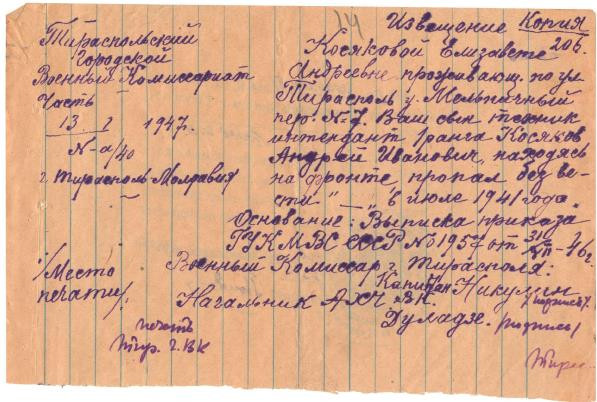 14
Извещение Копия
206.
Тираспольский
Городской
Военный Комиссариат
Часть
13 I 1947г.
N-а/40
г. Тирасполь-Молдавия
/Место
печати/.
Косяковой Елизавете
Андреевне проживающ. по ул
Тирасполь у. Мельничный
пер. N-7. Ваш сын техник
интендант I ранга Косяков
Андрей Иванович, находясь
на фронте пропал без ве-
сти "__" в июле 1941 года.
Основание: Выписка приказа
ГУК МВС СССР №01957 от 31/VII-46г.
Военный Комиссар г. Тирасполя:
Капитан Никулин /подпись/.
Начальник АХЧ
Дуладзе. /подпись/
печать
Тир. Г.ВК